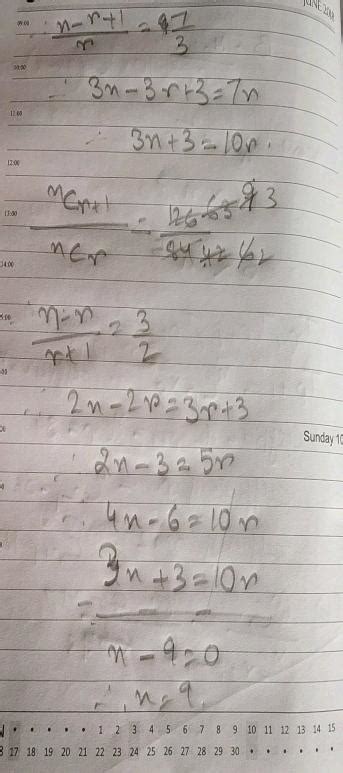 JUNE 2018
09:00 ∴ (n-r+1)/r = 7/3
10:00
∴ 3n-3r+3=7r
11:00
∴ 3n+3=10r.
12:00
13:00 nCr+1/nCr = 126 63 9 3/84 42 6 2
14:00
15:00 (n-r)/(r+1) = 3/2
00
∴ 2n-2r=3r+3
00 Sunday 10
∴ 2n-3=5r
∴ 4n-6=10r
3n+3=10r
- - -
n-9=0
∴ n=9.
1 2 3 4 5 6 7 8 9 10 11 12 13 14 15
17 18 19 20 21 22 23 24 25 26 27 28 29 30